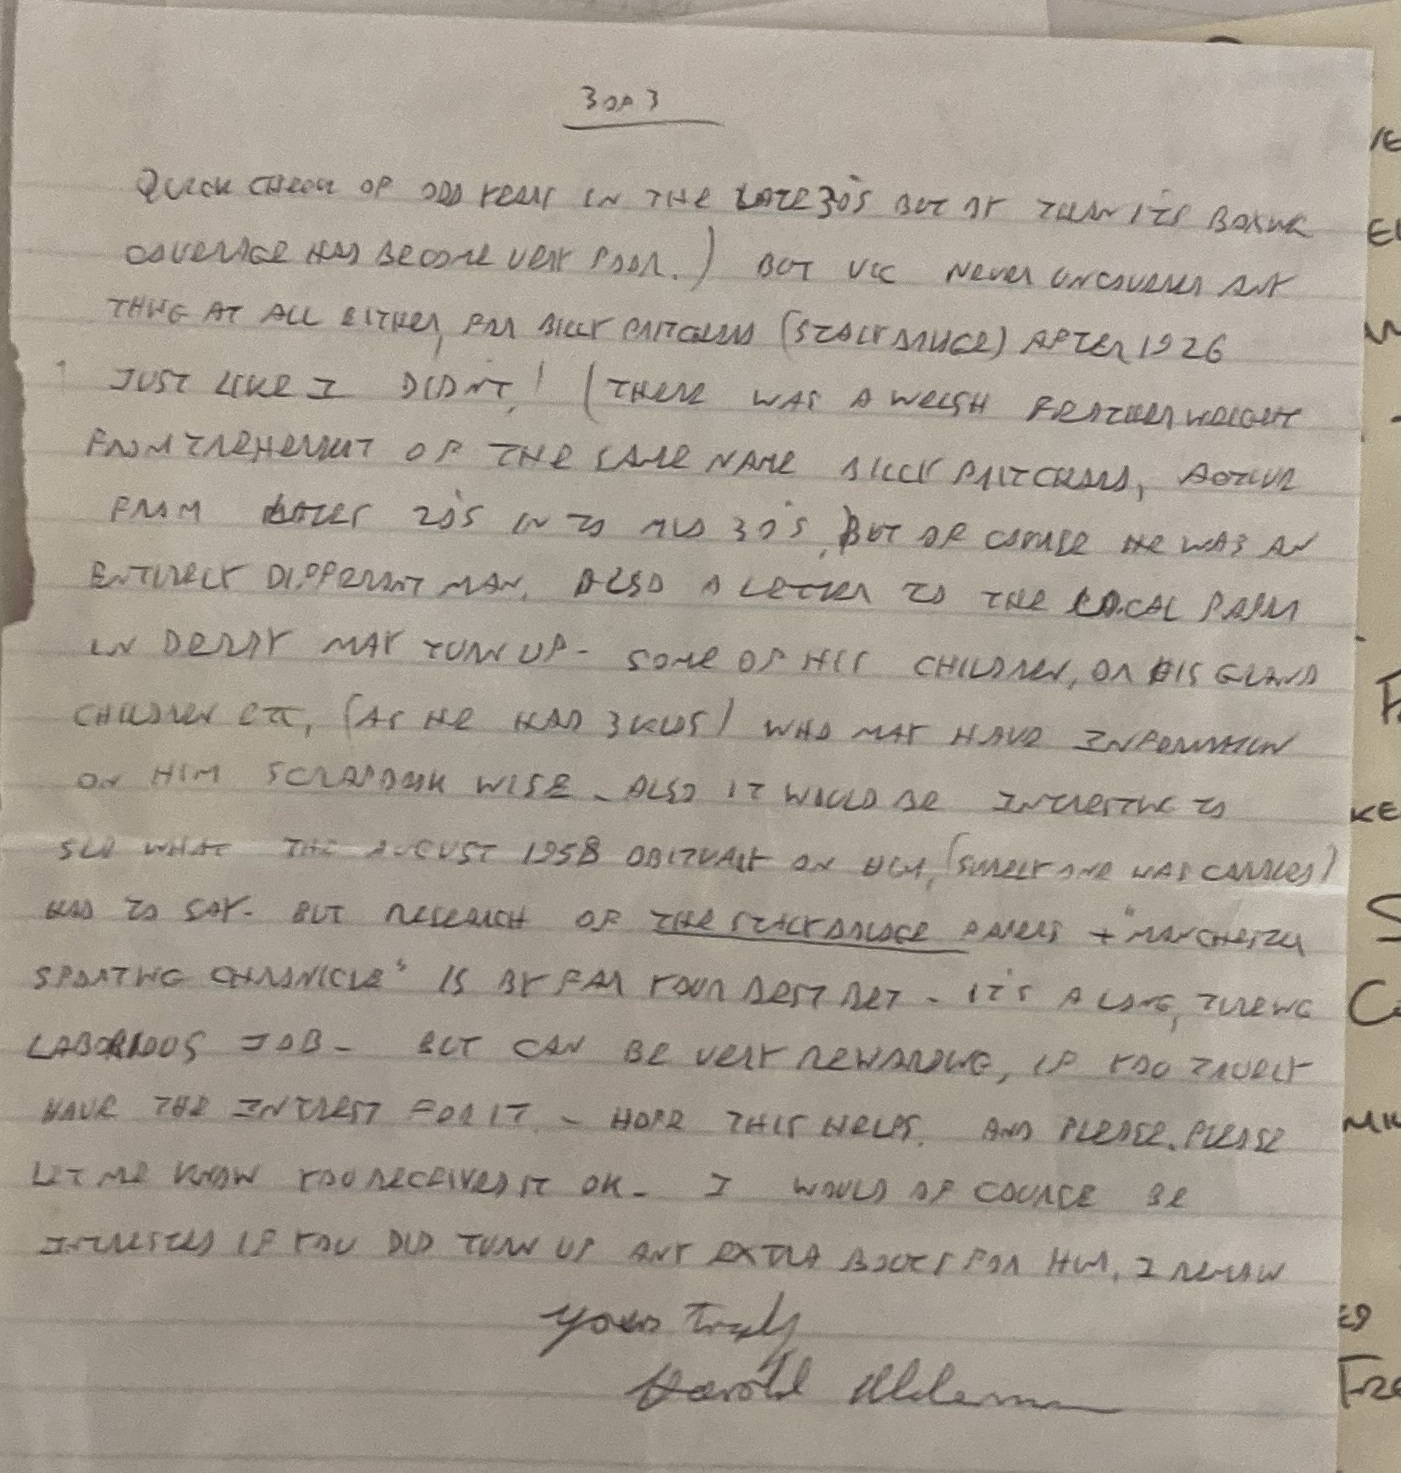 3 OF 3
QUICK CHECK OF ODD YEARS IN THE LATE 30'S BUT BY THAN IT'S BOXING
COVERAGE HAD BECOME VERY POOR.) BUT VIC NEVER UNCOVERED ANY
THING AT ALL EITHER, FOR BILLY PRITCHARD (STALYBRIDGE) AFTER 1926
JUST LIKE I DIDN'T! (THERE WAS A WELSH FEATHERWEIGHT
FROM TREHERBERT OF THE SAME NAME BILLY PRITCHARD, ACTIVE
FROM LATER 20'S INTO MID 30'S, BUT OF COURSE HE WAS AN
ENTIRELY DIFFERENT MAN. ALSO A LETTER TO THE LOCAL PAPER
IN DERBY MAY TURN UP - SOME OF HIS CHILDREN, OR HIS GRAND
CHILDREN ETC, (AS HE HAD 3 KIDS) WHO MAY HAVE INFORMATION
ON HIM SCRAPBOOK WISE - ALSO IT WOULD BE INTRESTING TO
SEE WHAT THE AUGUST 1958 OBITUARY ON HIM, (SURELY ONE WAS CARRIED)
HAD TO SAY - BUT RESEARCH OF THE STALYBRIDGE PAPERS + "MANCHESTER
SPORTING CHRONICLE" IS BY FAR YOUR BEST BET - IT'S A LONG, TIREING
LABORIOUS JOB - BUT CAN BE VERY REWARDING, IF YOU TRUELY
HAVE THE INTREST FOR IT - HOPE THIS HELPS. AND PLEASE, PLEASE
LET ME KNOW YOU RECEIVED IT OK - I WOULD OF COURSE BE
INTRESTED IF YOU DID TURN UP ANY EXTRA BOUTS FOR HIM, I REMAIN
Yours Truly
Harold Alderman